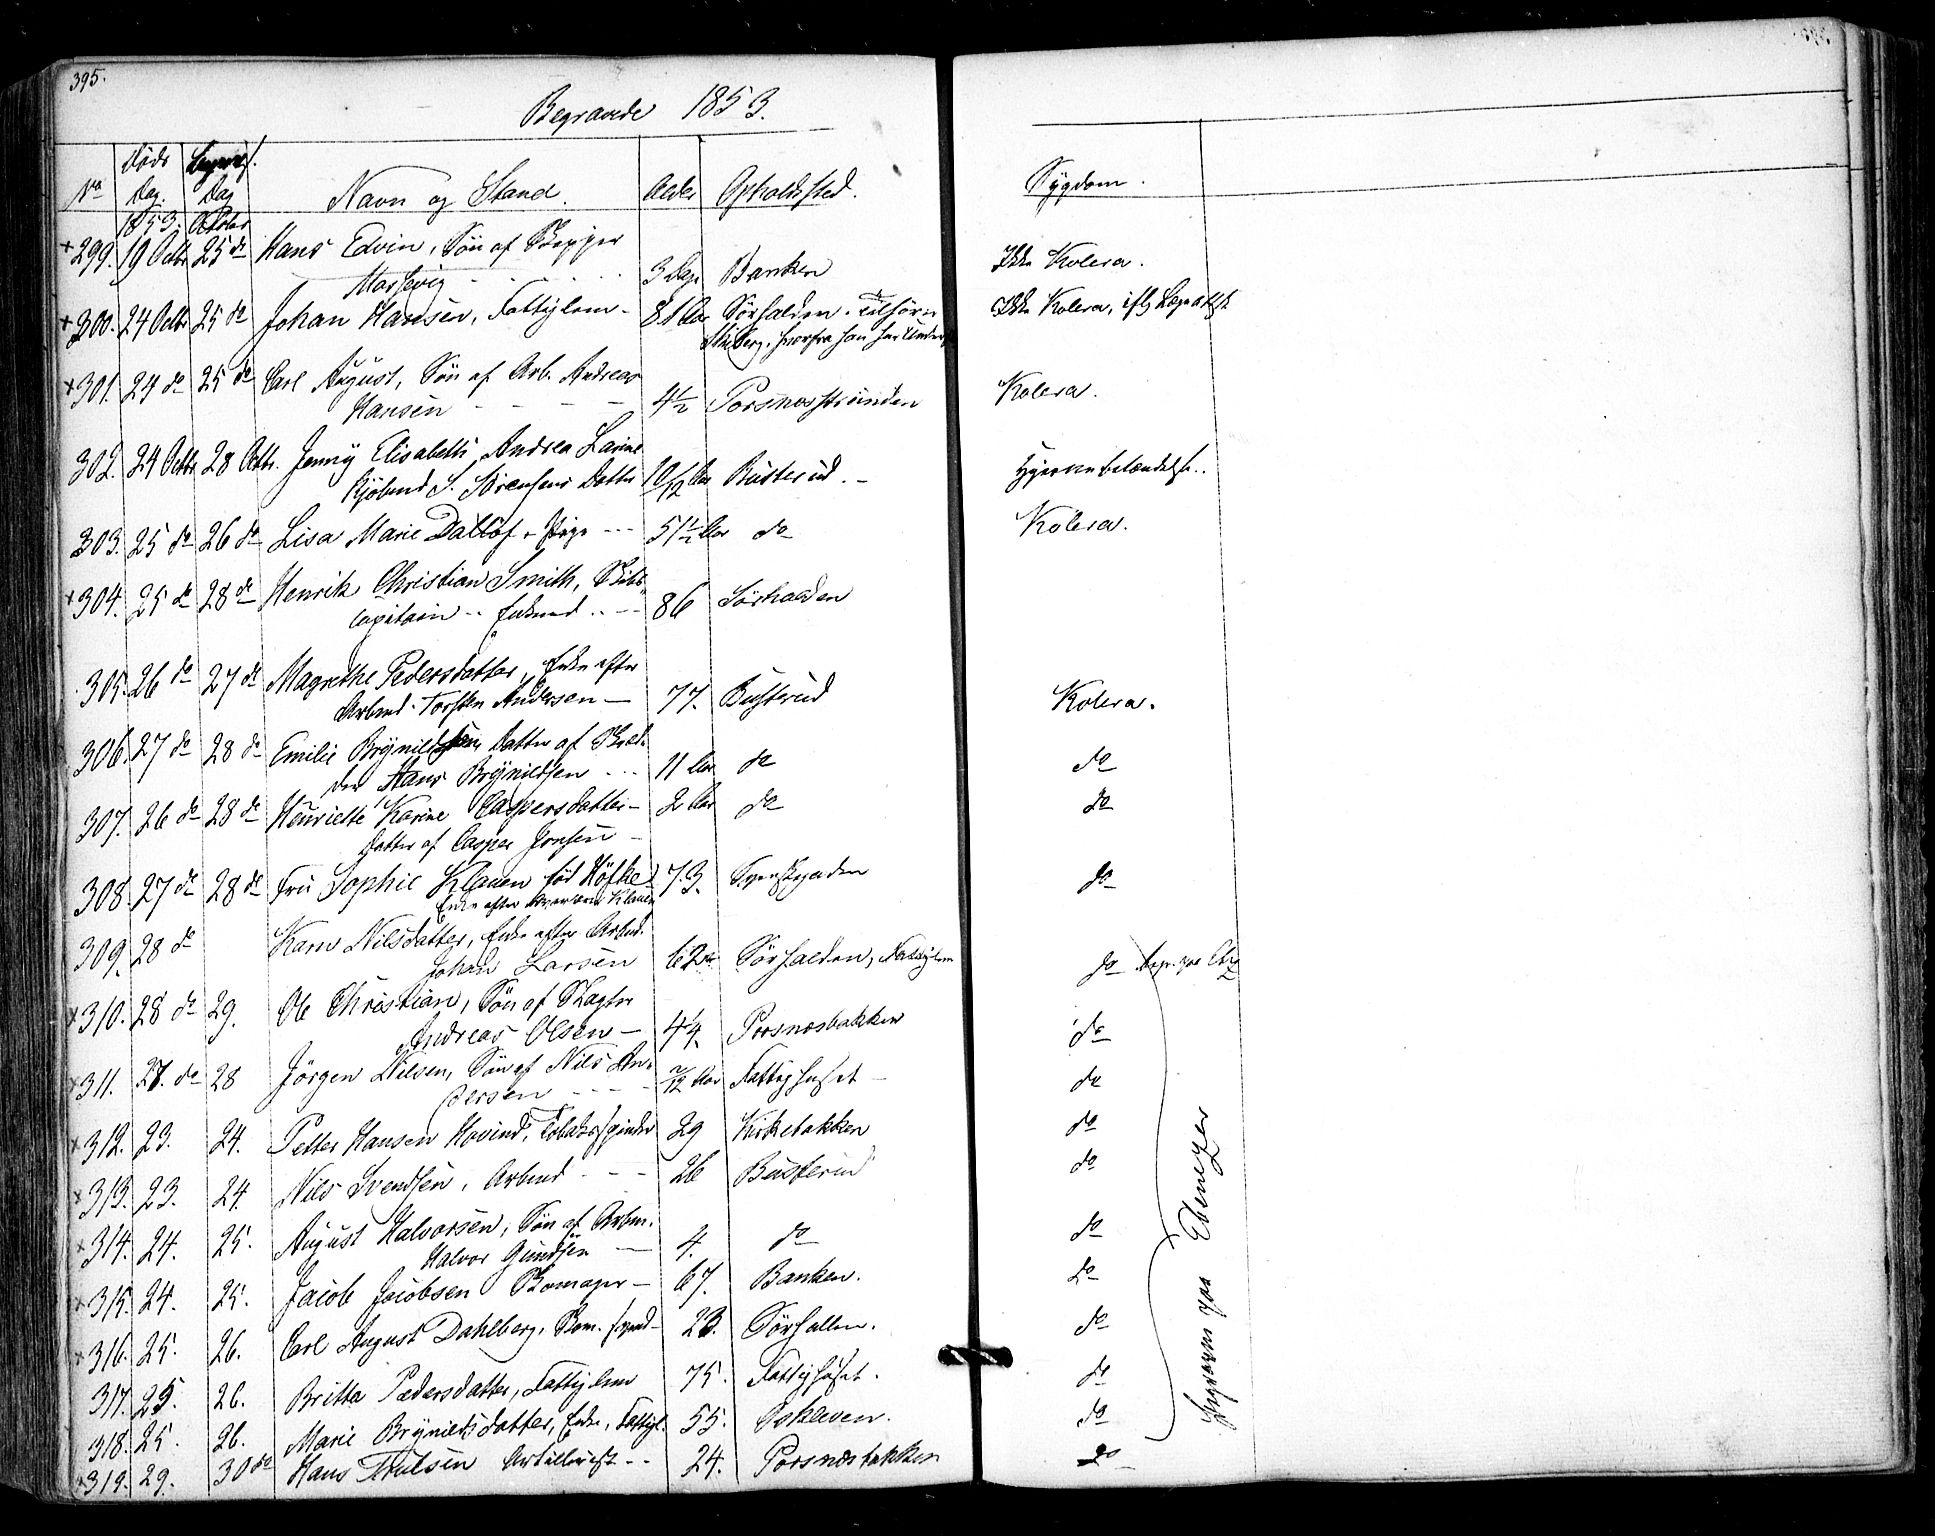 395.
Begravede 1853.
No Døds Dag. Begravs. Dag Navn og Stand. Alder Opholdsted. Sygdom.
1853. October
+299. 19 Octbr 25 do Hans Edvin, Søn af Skipper
3 Dage Banken Ikke Kolera.
+300. 24 Octbr 25 do Johan Hansen, Fattiglem - 81 Aar Sörhalden. Tilhører Ikke Kolera, iflg Lægeattst
hvorfra han har Under
+301. 24 do 25 do Carl August, Sön af Arb. Andreas
Hansen - - - - 4½ Porsnæsstranden Kolera.
302. 24 Octbr 28 Octbr. Jenny Elisabeth, Andrea Larine
Kjöbmd S. Sörensens Datter 10/12 Aar Busterud. - Hjernebetændelse.
303. 25 do 26 do Lisa Marie Dallöf - Pige --- 51½ Aar do Kolera.
+304. 25 do 28 do Henrik Christian Smith, Skibs
capitain -- Enkemd -- 86 Sörhalden
305. 26 do 27 do Magrethe Pedersdatter, Enke efter
Arbmd. Torsten Andersen - 77. Busterud Kolera.
306. 27 do 28 do Emilie Brynildsen Datter af Skræd-
der Hans Brynildsen --- 11 Aar do do
307. 26 do 28 do Henriette Karine Caspersdatter - 2 Aar do do
Datter af Casper Jonsen -
308. 27 do 28 do Fru Sophie Klauen föd Höfke 73. Svenskegaden do
Enke efter Klauen
309. 28 do Karn Nilsdatter, Enke efter Arbmd.
Johan Larsen 62 Aar Sörhalden, Fattiglem do Begr. paa Ebz
+310. 28 do 29. Ole Christian, Sön af Slagter
Andreas Olsen - 4¼. Porsnæsbakken do
+311. 27. do 28 Jörgen Nilsen, Sön af Nils An-
dersen --- 7/12 Aar Fattighuset - do
+312. 23. 24. Petter Hansen Hovind, Tobaksspinder 29 Kirkebakken do
+313. 23. 24. Nils Svendsen, Arbmd --- 26 Busterud do
+314. 24. 25. August Halvorsen, Sön af Arbm.
Halvor Gundsen - 4. do do
+315. 24. 25. Jacob Jacobsen Skomager - 67. Banken. do
+316. 25. 26. Carl August Dahlberg, Skom. svend - 23. Sörhallen. do
317. 25. 26. Britta Pedersdatter, Fattiglem 75. Fattighuset. do
318. 25. 26. Marie Brynildsdatter, Enke, Fattigl. 55. Oskleven. do
+319. 29. 30 do Hans Trulsen Artillerist -- 24. Porsnæsbakken do
Begraven paa Ebenezer